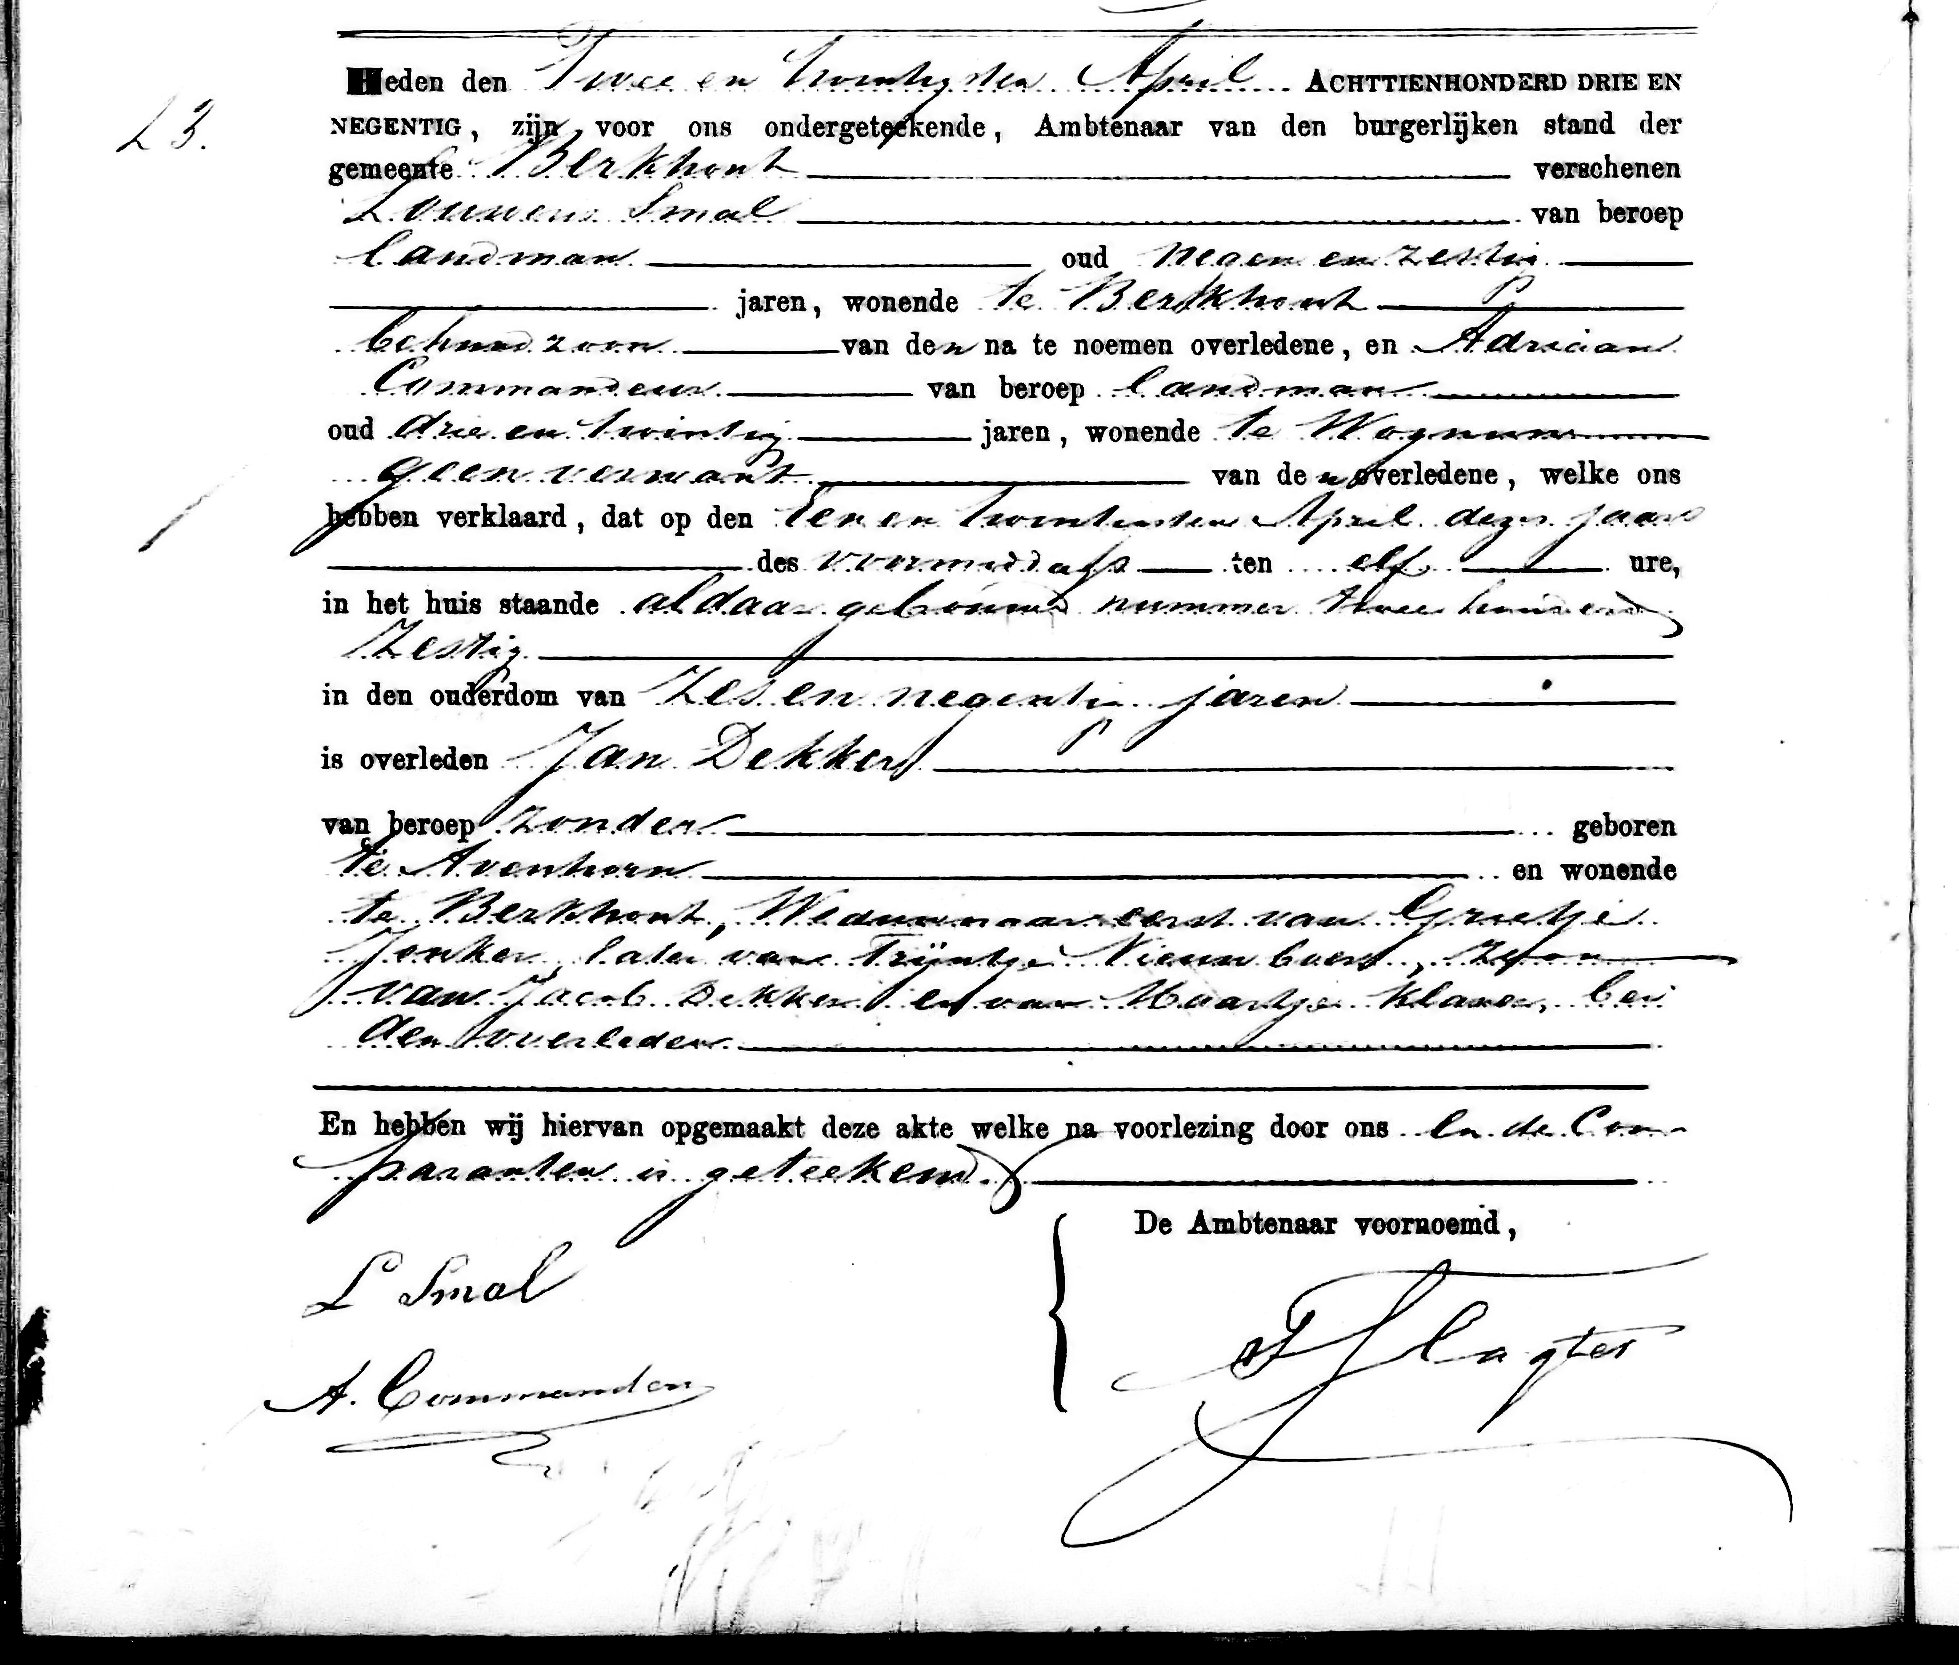 Heden den Twee en twintigsten April ACHTTIENHONDERD DRIE EN
23.
NEGENTIG, zijn voor ons ondergeteekende, Ambtenaar van den burgerlijken stand der
gemeente Berkhout verschenen
Louwens Smal van beroep
landman oud negen en zestig
jaren, wonende te Berkhout
behuwdzoon van den na te noemen overledene, en Adriaan
Commandeur van beroep landman
oud drie en twintig jaren, wonende te Wognum
geen verwant van den overledene, welke ons
hebben verklaard, dat op den Een en twintigsten April dezes jaars
des voormiddags ten elf ure,
in het huis staande aldaar gebouwd nummer twee honderd
zestig
in den ouderdom van zes en negentig jaren
is overleden Jan Dekker
van beroep zonder geboren
te Avenhorn en wonende
te Berkhout, Weduwnaar eerst van Grietje
Jonker, later van Trijntje Nieuwboer, zoon
van Jacob Dekker en van Maartje Klaver, bei
den overleden
En hebben wij hiervan opgemaakt deze akte welke na voorlezing door ons en de Com-
paranten is geteekend.
De Ambtenaar voornoemd,
L Smal
A. Commandeur
Slagter